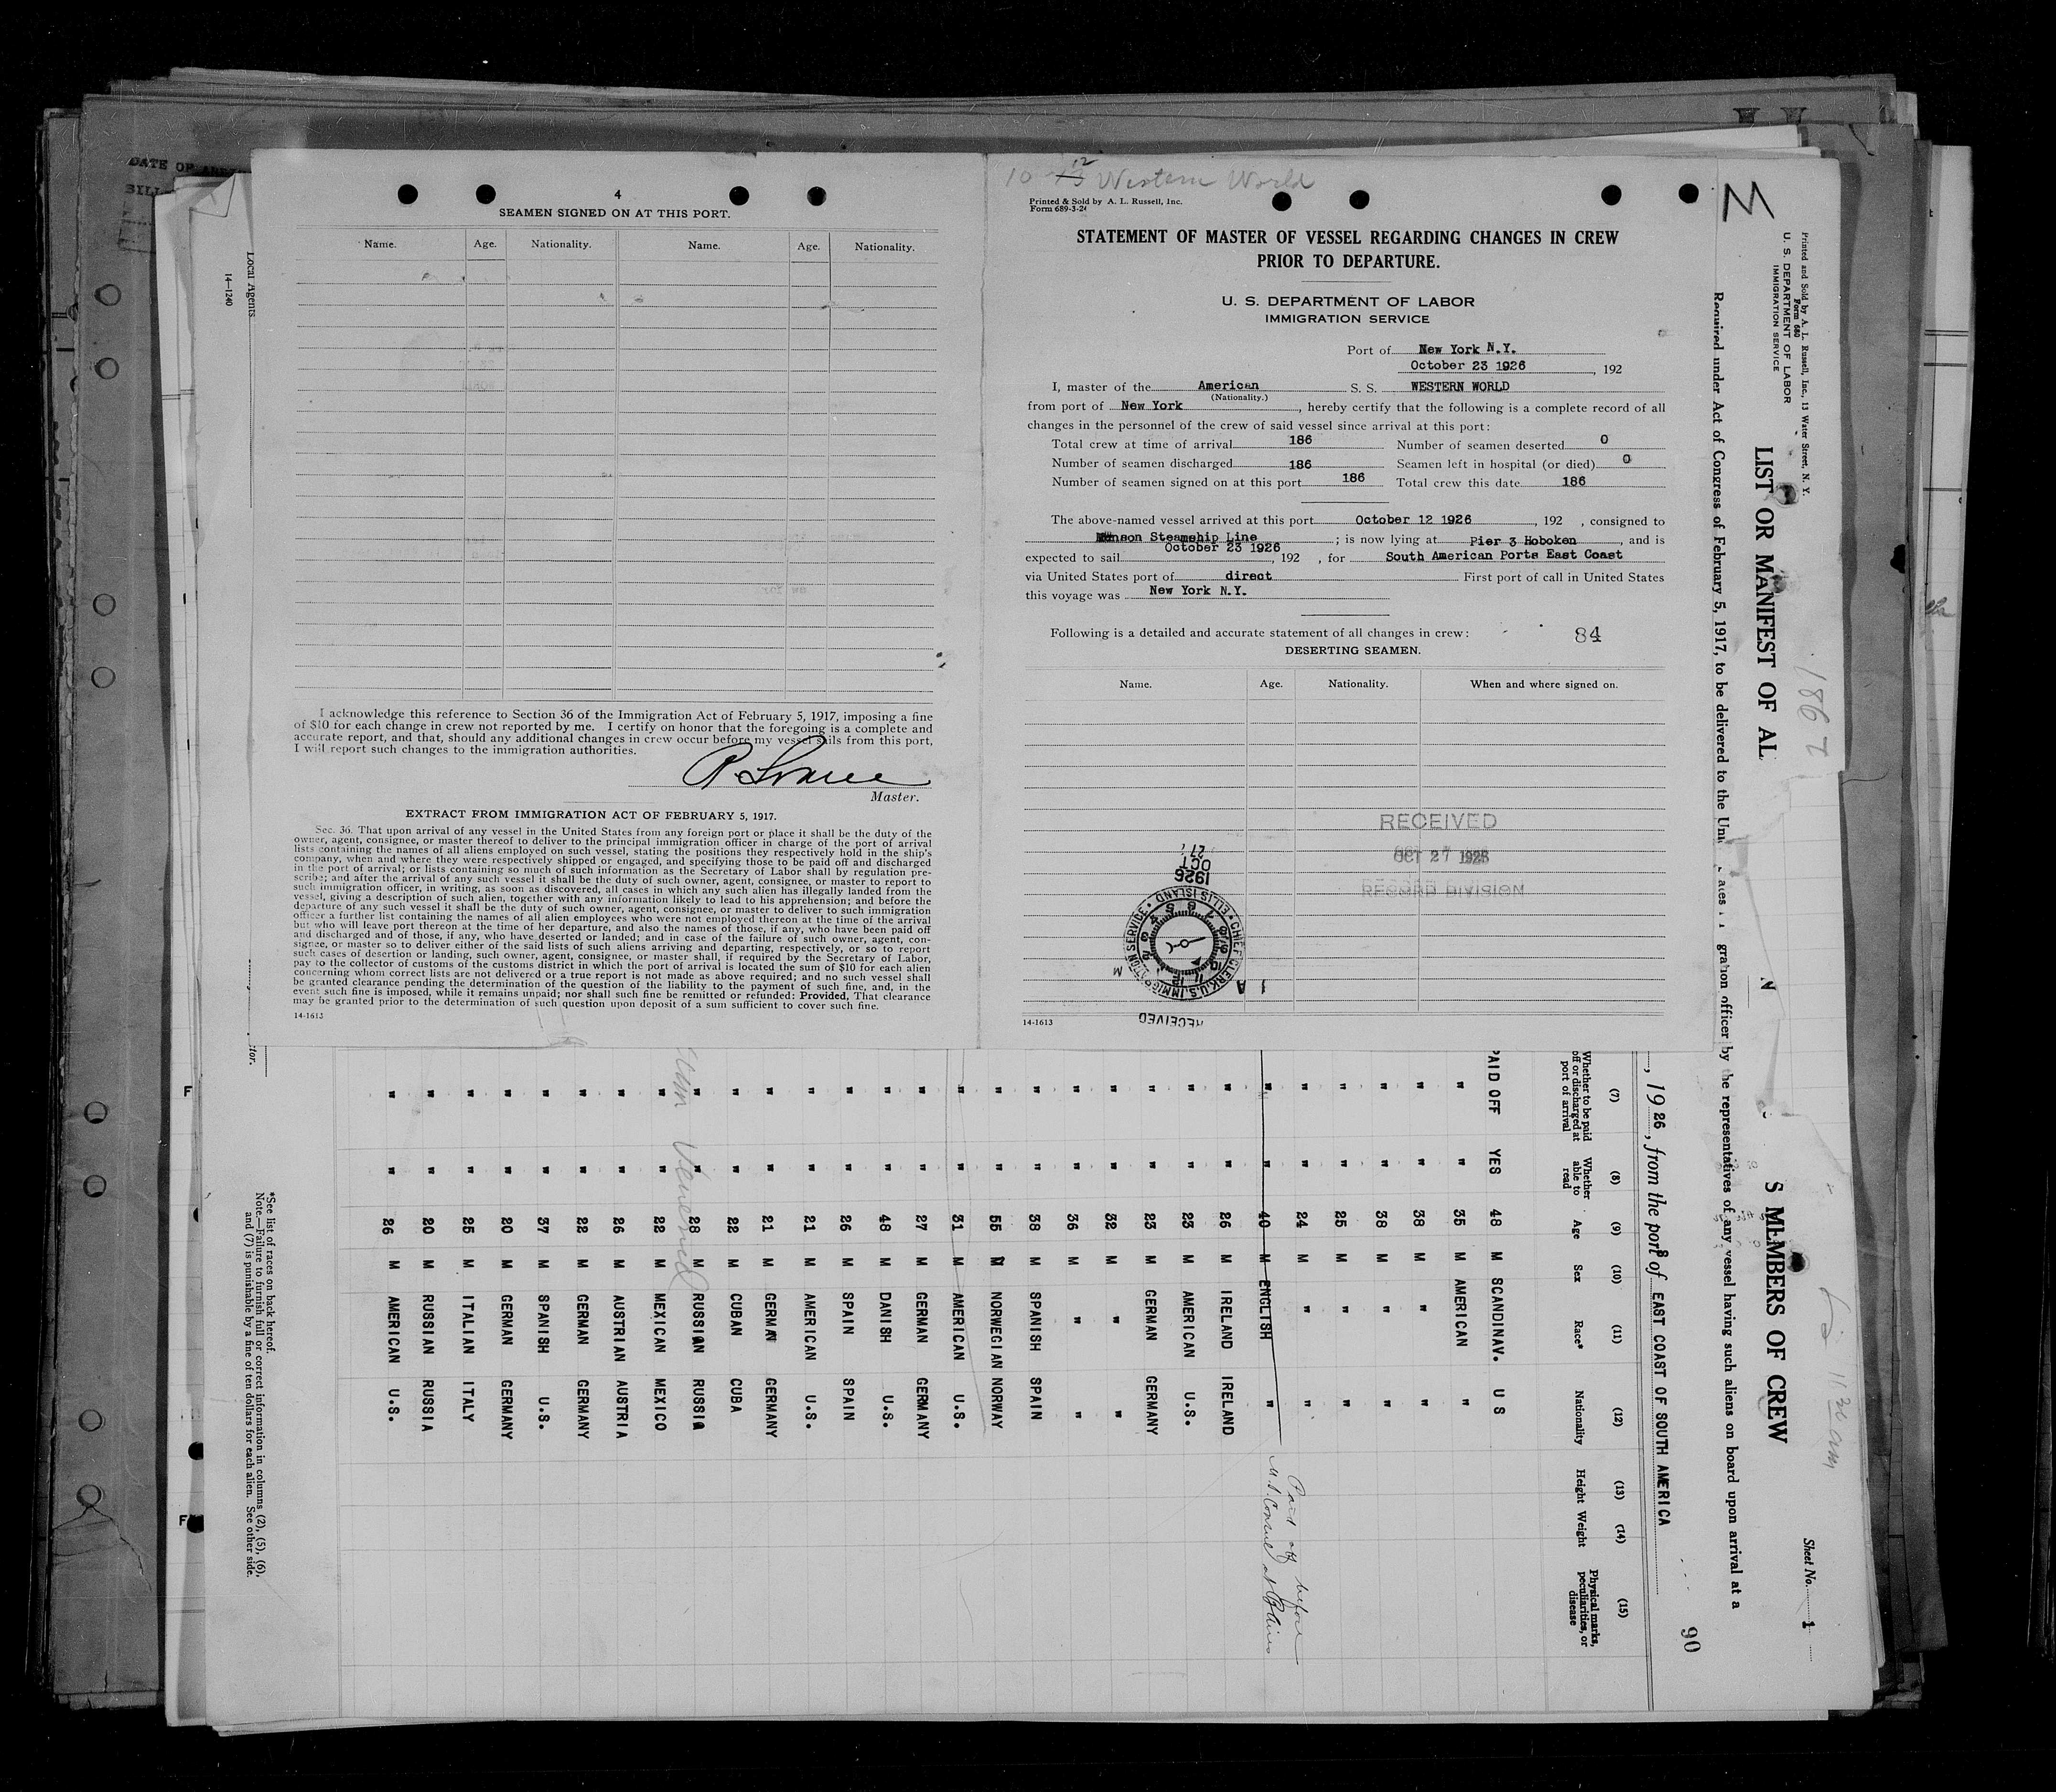 4
SEAMEN SIGNED ON AT THIS PORT.
Name. Age. Nationality. Name. Age. Nationality.
I acknowledge this reference to Section 36 of the Immigration Act of February 5, 1917, imposing a fine
of $10 for each change in crew not reported by me. I certify on honor that the foregoing is a complete and
accurate report, and that, should any additional changes in crew occur before my vessel sails from this port,
I will report such changes to the immigration authorities.
Master.
EXTRACT FROM IMMIGRATION ACT OF FEBRUARY 5, 1917.
Sec. 36. That upon arrival of any vessel in the United States from any foreign port or place it shall be the duty of the
owner, agent, consignee, or master thereof to deliver to the principal immigration officer in charge of the port of arrival
lists containing the names of all aliens employed on such vessel, stating the positions they respectively hold in the ship's
company, when and where they were respectively shipped or engaged, and specifying those to be paid off and discharged
in the port of arrival; or lists containing so much of such information as the Secretary of Labor shall by regulation pre-
scribe; and after the arrival of any such vessel it shall be the duty of such owner, agent, consignee, or master to report to
such immigration officer, in writing, as soon as discovered, all cases in which any such alien has illegally landed from the
vessel, giving a description of such alien, together with any information likely to lead to his apprehension; and before the
departure of any such vessel it shall be the duty of such owner, agent, consignee, or master to deliver to such immigration
officer a further list containing the names of all alien employees who were not employed thereon at the time of the arrival
but who will leave port thereon at the time of her departure, and also the names of those, if any, who have been paid off
and discharged and of those, if any, who have deserted or landed; and in case of the failure of such owner, agent, con-
signee, or master so to deliver either of the said lists of such aliens arriving and departing, respectively, or so to report
such cases of desertion or landing, such owner, agent, consignee, or master shall, if required by the Secretary of Labor,
pay to the collector of customs of the customs district in which the port of arrival is located the sum of $10 for each alien
concerning whom correct lists are not delivered or a true report is not made as above required; and no such vessel shall
be granted clearance pending the determination of the question of the liability to the payment of such fine, and, in the
event such fine is imposed, while it remains unpaid; nor shall such fine be remitted or refunded: Provided, That clearance
may be granted prior to the determination of such question upon deposit of a sum sufficient to cover such fine.
14-1613
10 - 12 Western World
Printed & Sold by A. L. Russell, Inc.
Form 689-3-24
STATEMENT OF MASTER OF VESSEL REGARDING CHANGES IN CREW
PRIOR TO DEPARTURE.
U. S. DEPARTMENT OF LABOR
IMMIGRATION SERVICE
Port of New York N.Y.
October 23 1926, 192
I, master of the American S. S. WESTERN WORLD
(Nationality.)
from port of New York, hereby certify that the following is a complete record of all
changes in the personnel of the crew of said vessel since arrival at this port:
Total crew at time of arrival 186 Number of seamen deserted 0
Number of seamen discharged 186 Seamen left in hospital (or died) 0
Number of seamen signed on at this port 186 Total crew this date 186
The above-named vessel arrived at this port October 12 1926, 192 , consigned to
Munson Steamship Line; is now lying at Pier 3 Hoboken, and is
expected to sail October 23 1926, 192 , for South American Ports East Coast
via United States port of direct First port of call in United States
this voyage was New York N.Y.
Following is a detailed and accurate statement of all changes in crew: 84
DESERTING SEAMEN.
Name. Age. Nationality. When and where signed on.
RECEIVED
OCT 27 1926
RECORD DIVISION
1926
OCT
27
CHIEF CLERK, U.S. IMMIGRATION SERVICE • ELLIS ISLAND
RECEIVED
14-1613
M
Printed and Sold by A. L. Russell, Inc., 13 Water Street, N. Y.
Form 680
U. S. DEPARTMENT OF LABOR
IMMIGRATION SERVICE
Sheet No. 1
LIST OR MANIFEST OF AL
S MEMBERS OF CREW
186
Required under Act of Congress of February 5, 1917, to be delivered to the Uni
gration officer by the representatives of any vessel having such aliens on board upon arrival at a
90
, 1926, from the ports of EAST COAST OF SOUTH AMERICA
(7) (8) (9) (10) (11) (12) (13) (14) (15)
Whether to be paid off or discharged at port of arrival Whether able to read Age Sex Race* Nationality Height Weight Physical marks, peculiarities, or disease
PAID OFF YES 48 M SCANDINAV. U S
" " 35 M AMERICAN "
" " 38 M " "
" " 38 M " "
" " 25 M " "
" " 24 M " "
" " 40 M ENGLISH " Paid off before
" " 26 M IRELAND IRELAND
" " 23 M AMERICAN U.S.
" " 23 M GERMAN GERMANY
" " 32 M " "
" " 36 M " "
" " 38 M SPANISH SPAIN
" " 55 M NORWEGIAN NORWAY
" " 31 M AMERICAN U.S.
" " 27 M GERMAN GERMANY
" " 48 M DANISH U.S.
" " 26 M SPAIN SPAIN
" " 21 M AMERICAN U.S.
" " 21 M GERMAN GERMANY
" " 22 M CUBAN CUBA
" " 28 M RUSSIAN RUSSIA
" " 22 M MEXICAN MEXICO
" " 26 M AUSTRIAN AUSTRIA
" " 22 M GERMAN GERMANY
" " 37 M SPANISH U.S.
" " 20 M GERMAN GERMANY
" " 25 M ITALIAN ITALY
" " 20 M RUSSIAN RUSSIA
" " 26 M AMERICAN U.S.
*See list of races on back hereof.
Note.—Failure to furnish full or correct information in columns (2), (5), (6),
and (7) is punishable by a fine of ten dollars for each alien. See other side.
Local Agents
14-1240
DATE OF
F
F